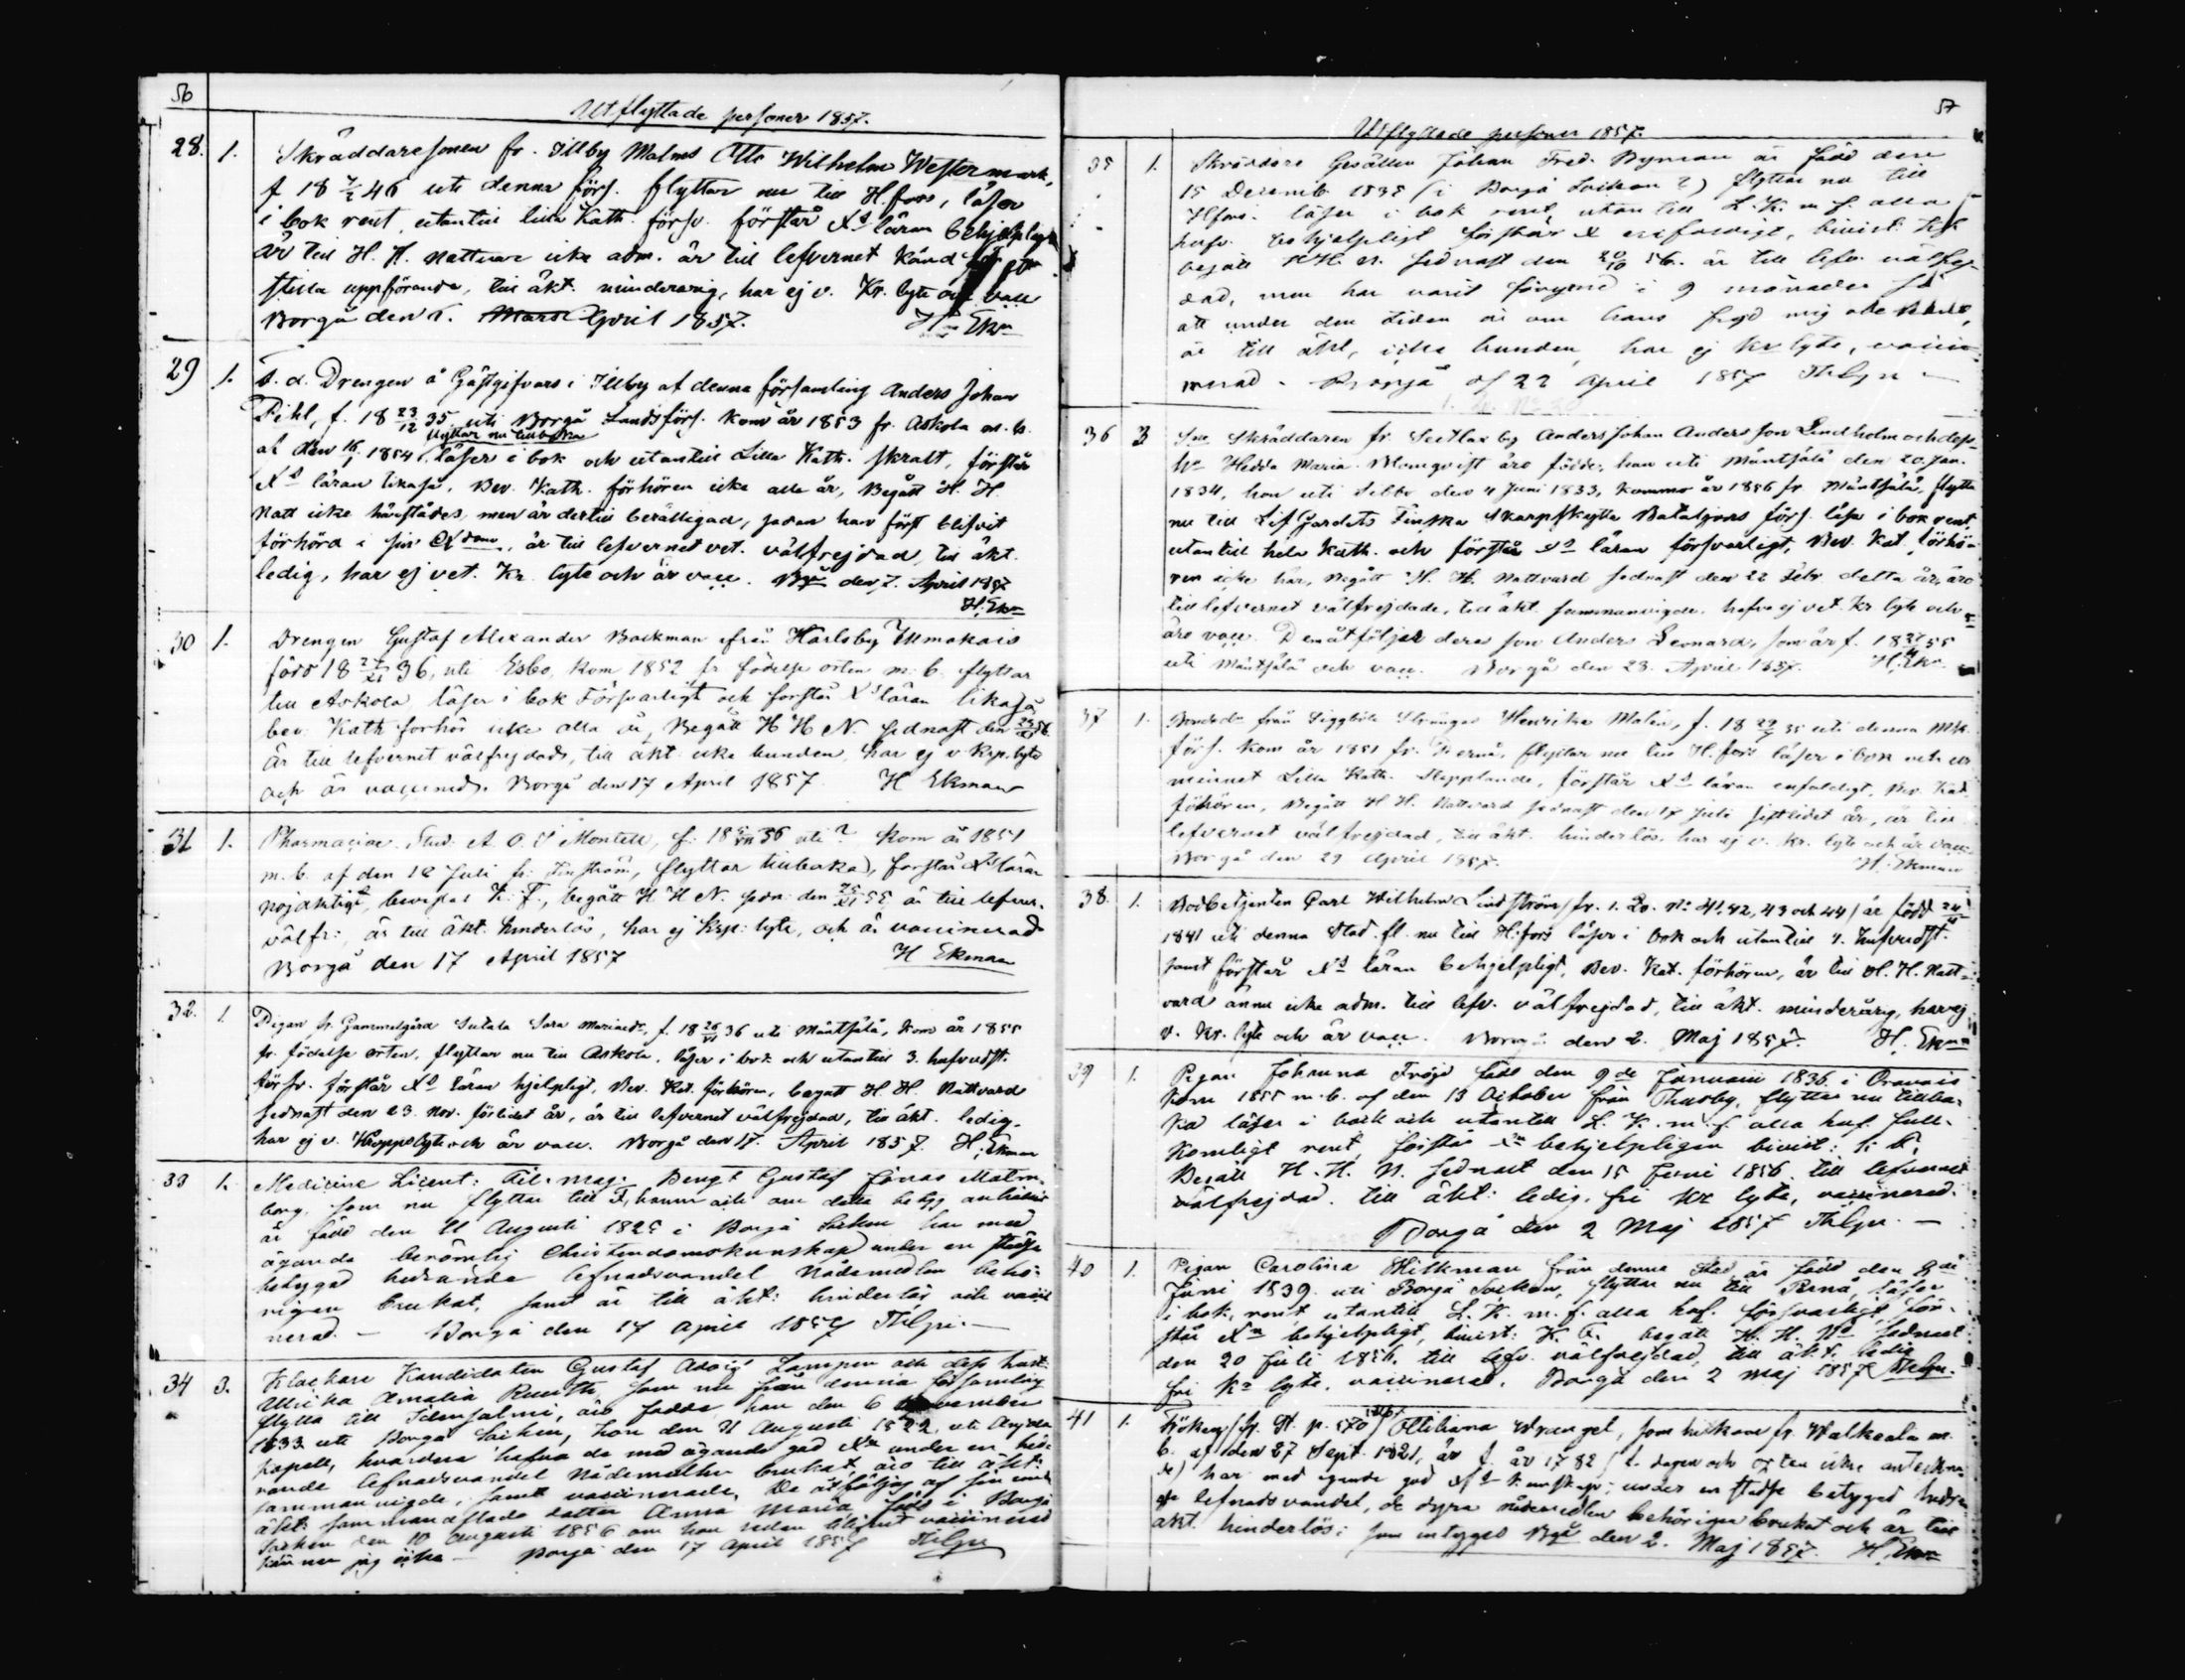 56
Utflyttade personer 1857.
28. 1. Skräddaresonen fr. Illby Malms Otto Wilhelm Westermark,
f 18 7/2 46 uti denna förs. flyttar nu till H.fors, läser
i bok rent, utantill lilla Kath. förs. förstår Xs läran behjelpligt
är till H. H. Nattvar icke adm. är till lefvernet känd för
stilla uppförande, till äkt. minderårig, har ej v. Kr. lyte och vacc
Borgå den 1. Mars April 1857. H Ekn
29 1. S. d. Drengen å Gästgifvars i Illby af denna församling Anders Johan
Pihl, f. 18 23/12 35 uti Borgå Landsförs. Kom år 1853 fr. Askola m. b.
flyttar nu tillbaka
af den 16/1 1854 läser i bok och utantill Lilla Kath. skralt, förstår
Xs läran likaså. Bev. Kath. förhören icke alla år, Begått H. H.
Natt icke härstädes, men är dertill berättigad, sedan han först blifvit
förhörd i sin Xdom, är till lefvernet vet. välfrejdad, till äkt.
ledig, har ej vet. Kr. lyte och är vacc. Bgå den 7. April 1857
H. Ekn
30 1. Drengen Gustaf Alexander Backman ifrån Karlsby
född 18 36, uti Esbo, kom 1852 fr födelse orten m. b. flyttar
till Askola, läser i bok Försvarligt och forstår Xs läran likaså
bev. Kath forhör icke alla år, Begått H H N. sednast den
Är till lefvernet välfrejdad, till äkt icke bunden, har ej v krp. lyte
och är vaccined. Borgå den 17 April 1857 H Ekman
31 1. Pharmaciae Stud. A. O. Montell, f: 18 36 uti? Kom år 1854
m. b. af den 18 Juli fr. Finström, flyttar tillbaka, forstår Xs läran
nöjaktigt, bevistat K. F., begått H H N. sedn. den 55 är till lefver.
välfr:, är till äkt. hinderlös, har ej krp: lyte, och är vaccinerad
Borgå den 17 April 1857 H Ekman
32. 1. Pigan fr. Gammelgård Sutala Sara Mariaedr, f. 18 26/VI 36 uti Mäntsälä, kom år 1855
fr. födelse orten, flyttar nu till Askola, läser i bok och utantill 3. hufvudst.
förs. förstår Xs läran hjelpligt, Bev. Kat. förhören, begått H. H. Nattvard
sednast den 23. Nov. förlidet år, är till lefvernet välfrejdad, till äkt. ledig.
har ej v. Kroppslyte och är vacc. Borgå den 17. April 1857. H. Ekman
33 1. Medicine Licent: Fil. mag. Bengt Gustaf Jonas Malm-
borg som nu flyttar till och om detta betyg anhållit
är född den 21 Augusti 1825 i Borgå Socken har med
ägande berömlig Christendomskunskap under en städse
betygad hedrande lefnadsvandel Nådemedlen behö-
rigen brukat, samt är till äkt: hinderlös och vacci
nerad. — Borgå den 17 April 1857
34 3. Klockare Kandidaten Gustaf Adolf Lampen och dess hust:
Ulrika Amalia som nu från denna församling
flytta till Idensalmi, äro fodde han den 6 November
1833 uti Borgå Socken, hon den 31 Augusti 1822 uti
Kapell, hvardera hafva de med ägande god Xm under en hed-
rande lefnadsvandel Nådemedlen brukat, äro till äkt:
sammanvigde, samt vaccinerade. De åtföljas af sin inom
äkt: sammanaflade dotter Anna Maria född i Borgå
Socken den 10 Augusti 1856 om hon redan blifvit vaccinerad
känner jag icke — Borgå den 17 April 1857
57
Utflyttade personer 1857.
35 1. Skräddare Gesällen Johan Fred. Nyman är född den
15 Decemb 1835 (i Borgå Socken?) flyttar nu till
Hfors. läser i bok rent, utantill L. K. m f. alla
hufv. behjelpligt förstår X enfaldigt, bivist: Kf.
begått HH. N. sednast den 20/10 56. är till lefv. välfrej-
dad, men har varit 9 månader så
att under den tiden är om hans frejd mig obekant,
är till äkt, icke bunden, har ej kr lyte, vacci-
nerad. Borgå d 22 April 1857
36 3 Skräddaren fr. Seetlax by Anders Johan Andersson Lindholm och dess
Hedda Maria Blomqvist äro födde, han uti Mäntsälä den 20. Jan.
1834, hon uti Sibbo den 4 Juni 1833, Kommo år 1856 fr Mäntsälä, flytta
nu till Lif Gardets Finska Skarpskytte Bataljons förs. läsa i bok rent,
utantill hela Kath. och förstår Xs läran försvarligt, Bev. Kat. förhö-
ren icke här, Begått H. H. Nattvard sednast den 22 Febr. detta år, äro
till lefvernet välfrejdade, till äkt. sammanvigde, hafva ej vet. Kr. lyte och
äro vacc. Dem åtföljer deras son Anders Leonard, som är f. 18 55
uti Mäntsälä och vacc. Borgå den 23. April 1857. H. Ekn
37 1. Bondedr från Siggböle Strångas Henrika Malin, f. 18 35 uti denna
förs. Kom år 1851 fr. Pernå, flyttar nu till H.fors läser i bok och ur
minnet Lilla Kath. stapplande, förstår Xs läran enfaldigt, Bev. Kat.
förhören, Begått H H. Nattvard sednast den 17 Juli sistlidet år, är till
lefvernet välfrejdad, till äkt. hinderlös, har ej v. Kr. lyte och är vacc.
Borgå den 29 April 1857. H. Ekman
38. 1. Bodbetjenten Carl Wilhelm Lindström (fr. 1. Qv. No 41, 42, 43 och 44) är född 24/4
1841 uti denna Stad. fl. nu till H:fors läser i bok och utantill 4. hufvudst.
samt förstår Xs läran behjelpligt, Bev. Kat. förhören, är till H. H. Natt-
vard ännu icke adm. till lefv. välfrejdad, till äkt. minderårig, har ej
v. Kr. lyte och är vacc. Borgå den 2. Maj 1857. H. Ekman
39 1. Pigan Johanna Fröjd född den 9de Januarii 1836. i Oravais
kom 1855 m. b. af den 13 October från Thusby, flyttar nu tillba-
ka läser i bok och utantill L. K. m f alla huf. full-
komligt rent, förstår Xn behjelpligen bivist: K. F.
Begått H. H. N. sednast den 15 Juni 1856. till lefvernet
välfrejdad. till äkt: ledig, fri kr lyte, vaccinerad.
Borgå den 2 Maj 1857
40 1. Pigan Carolina Hilkman från denna Stad är född den 9de
Juni 1839. uti Borgå Socken, flyttar nu till Pernå, läser
i bok, rent, utantill L. K. m. f. alla huf. försvarligt, för-
står Xn behjelpligt, bivist: K. F. begått H. H. Nd sednast
den 20 Juli 1856. till lefv. välfrejdad, till äkt. ledig
fri Kr lyte, vaccinerad. Borgå den 2 Maj 1857
41 1. Fröken (fr. St. p. 570) Ottiliana Wrangel, som hitkom fr. Walkeala m.
b. af den 27 Sept. 1821, är f. år 1782 (f. dagen och orten icke anteckna-
de) har med egande god Xs kunskap; under en städse betygad hedran
de lefnadsvandel, de dyra nådemedlen behörigen brukat och är till
äkt. hinderlös: som intygas Bgå den 2. Maj 1857. H. Ekn